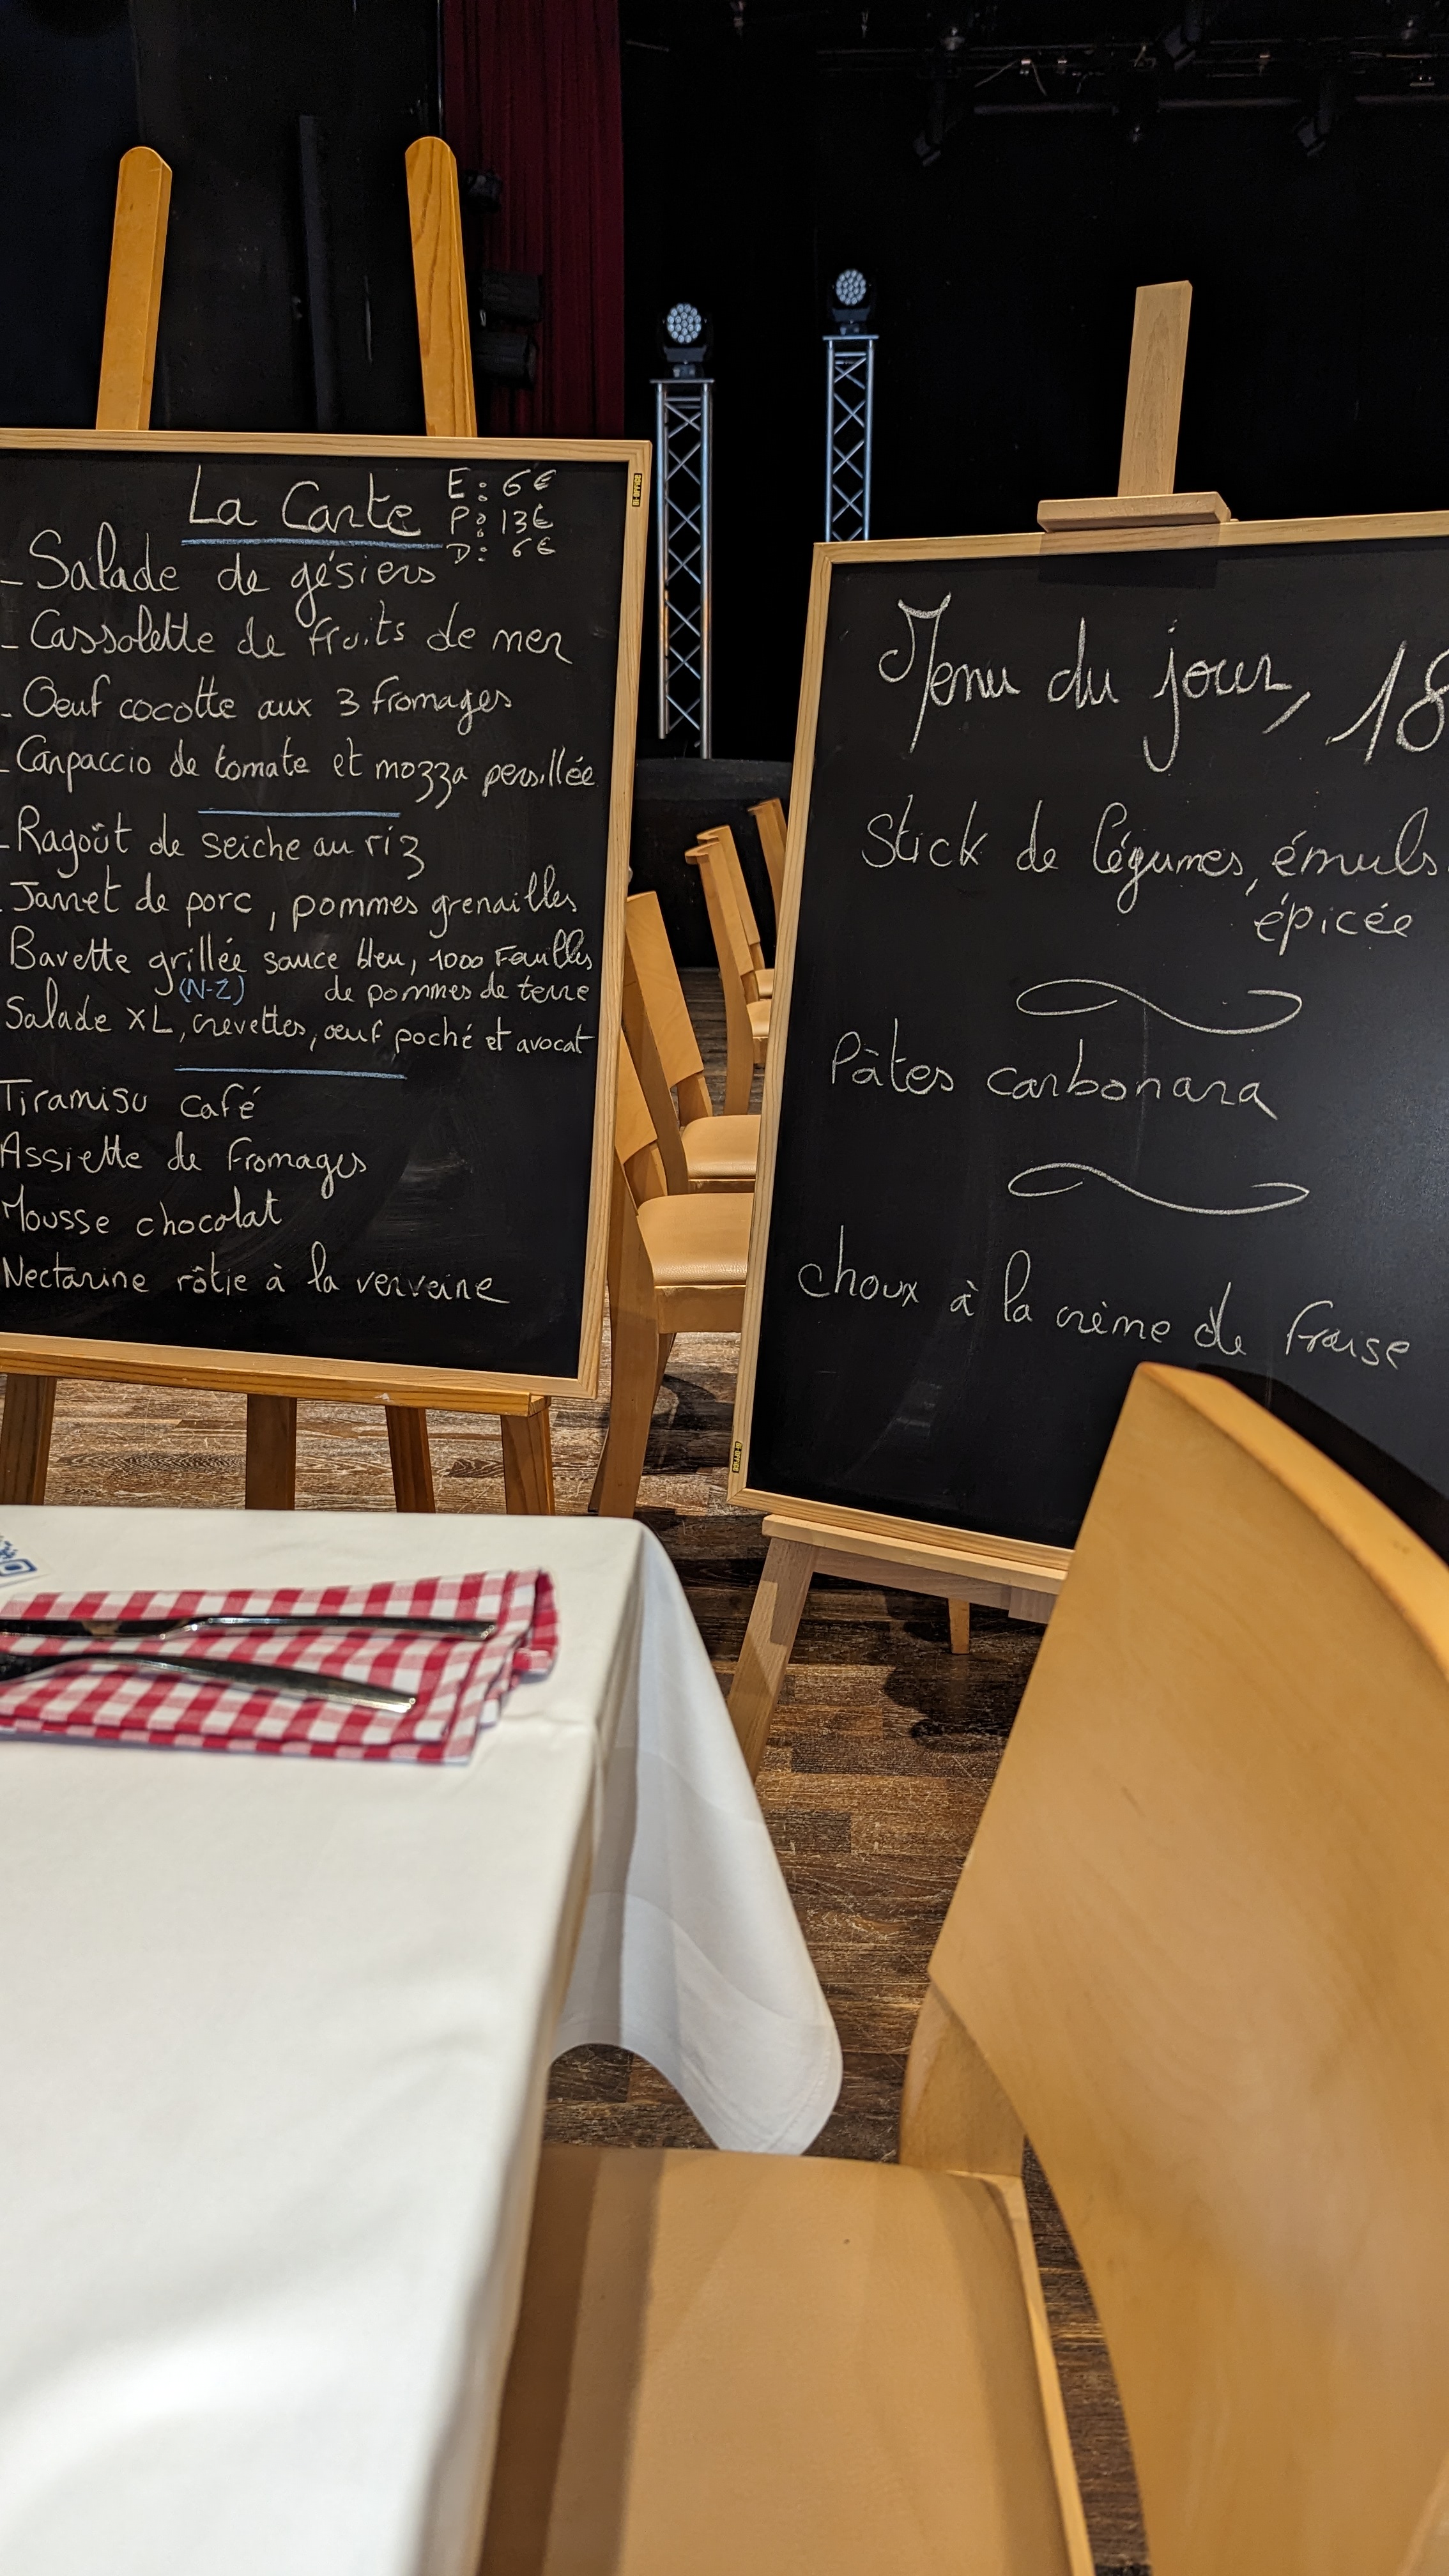 La Carte
E: 6€
P: 13€
D: 6€
- Salade de gésiers
- Cassolette de fruits de mer
- Oeuf cocotte aux 3 fromages
- Carpaccio de tomate et mozza persillée
- Ragoût de seiche au riz
- Jarret de porc, pommes grenailles
Bavette grillée sauce bleu, 1000 Feuilles
(N-Z) de pommes de terre
Salade XL, crevettes, œuf poché et avocat
Tiramisu café
Assiette de fromages
Mousse chocolat
Nectarine rôtie à la verveine
BI-OFFICE
Menu du jour, 18
Stick de légumes, émuls
épicée
Pâtes carbonara
choux à la crème de fraise
BI-OFFICE